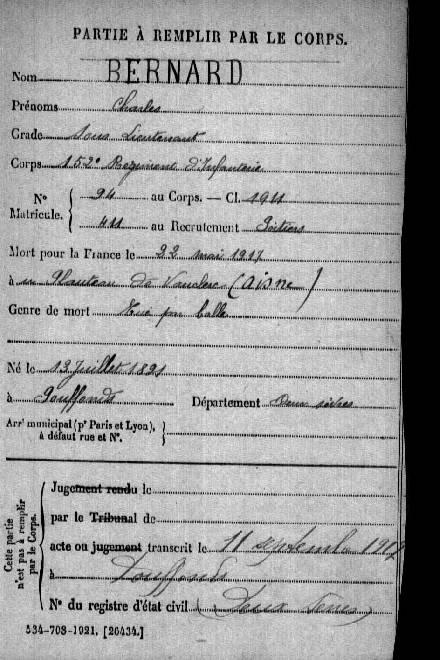 PARTIE À REMPLIR PAR LE CORPS.
Nom BERNARD
Prénoms Charles
Grade Sous Lieutenant
Corps 152e Régiment d'Infanterie
N° Matricule. { 94 au Corps. — Cl. 1911
411 au Recrutement Poitiers
Mort pour la France le 22 mai 1917
à un Plauteau de Vauclerc (Aisne)
Genre de mort Tué par balle
Né le 13 Juillet 1891
à Gouffonds Département Deux sèvres
Arrt municipal (pr Paris et Lyon), à défaut rue et N°.
Cette partie n'est pas à remplir par le Corps.
Jugement rendu le
par le Tribunal de
acte ou jugement transcrit le 11 septembre 1917
à
N° du registre d'état civil (Deux Sèvres)
534-708-1921. [26434.]